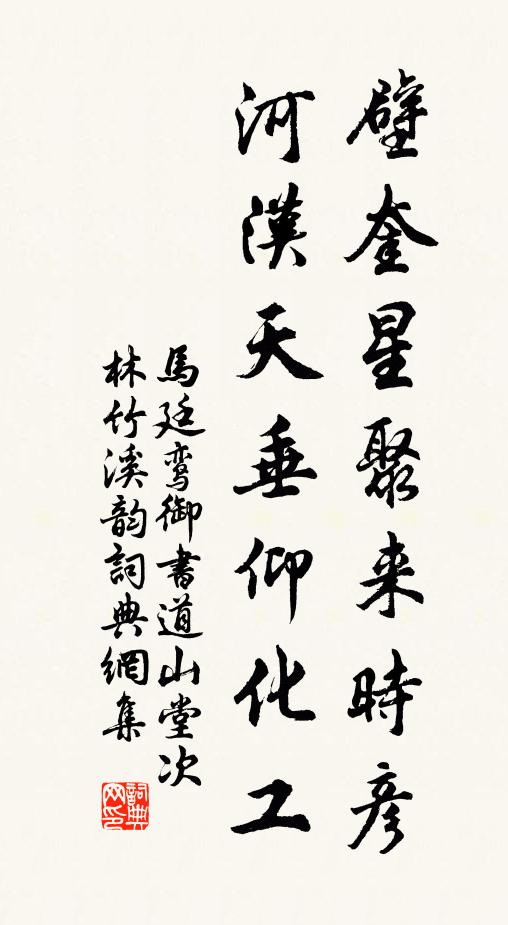 壁奎星聚来時彦
河漢天垂仰化工
馬廷鸞御書道山堂次
林竹溪韵詞典網集
詞典网印